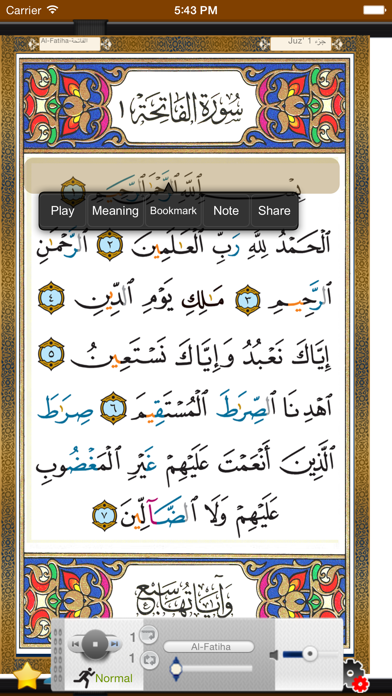 Carrier 5:43 PM
Al-Fatiha-الفاتحة Juz' 1 جزء
سُورَةُ الْفَاتِحَةِ ١
بِسْمِ اللَّهِ الرَّحْمَٰنِ الرَّحِيمِ ١
Play Meaning Bookmark Note Share
الْحَمْدُ لِلَّهِ رَبِّ الْعَالَمِينَ ٢ الرَّحْمَٰنِ
الرَّحِيمِ ٣ مَالِكِ يَوْمِ الدِّينِ ٤
إِيَّاكَ نَعْبُدُ وَإِيَّاكَ نَسْتَعِينُ ٥
اهْدِنَا الصِّرَاطَ الْمُسْتَقِيمَ ٦ صِرَاطَ
الَّذِينَ أَنْعَمْتَ عَلَيْهِمْ غَيْرِ الْمَغْضُوبِ
عَلَيْهِمْ وَلَا الضَّالِّينَ ٧
وَآيَاتُهَا سَبْعٌ
1
Al-Fatiha
1
Normal